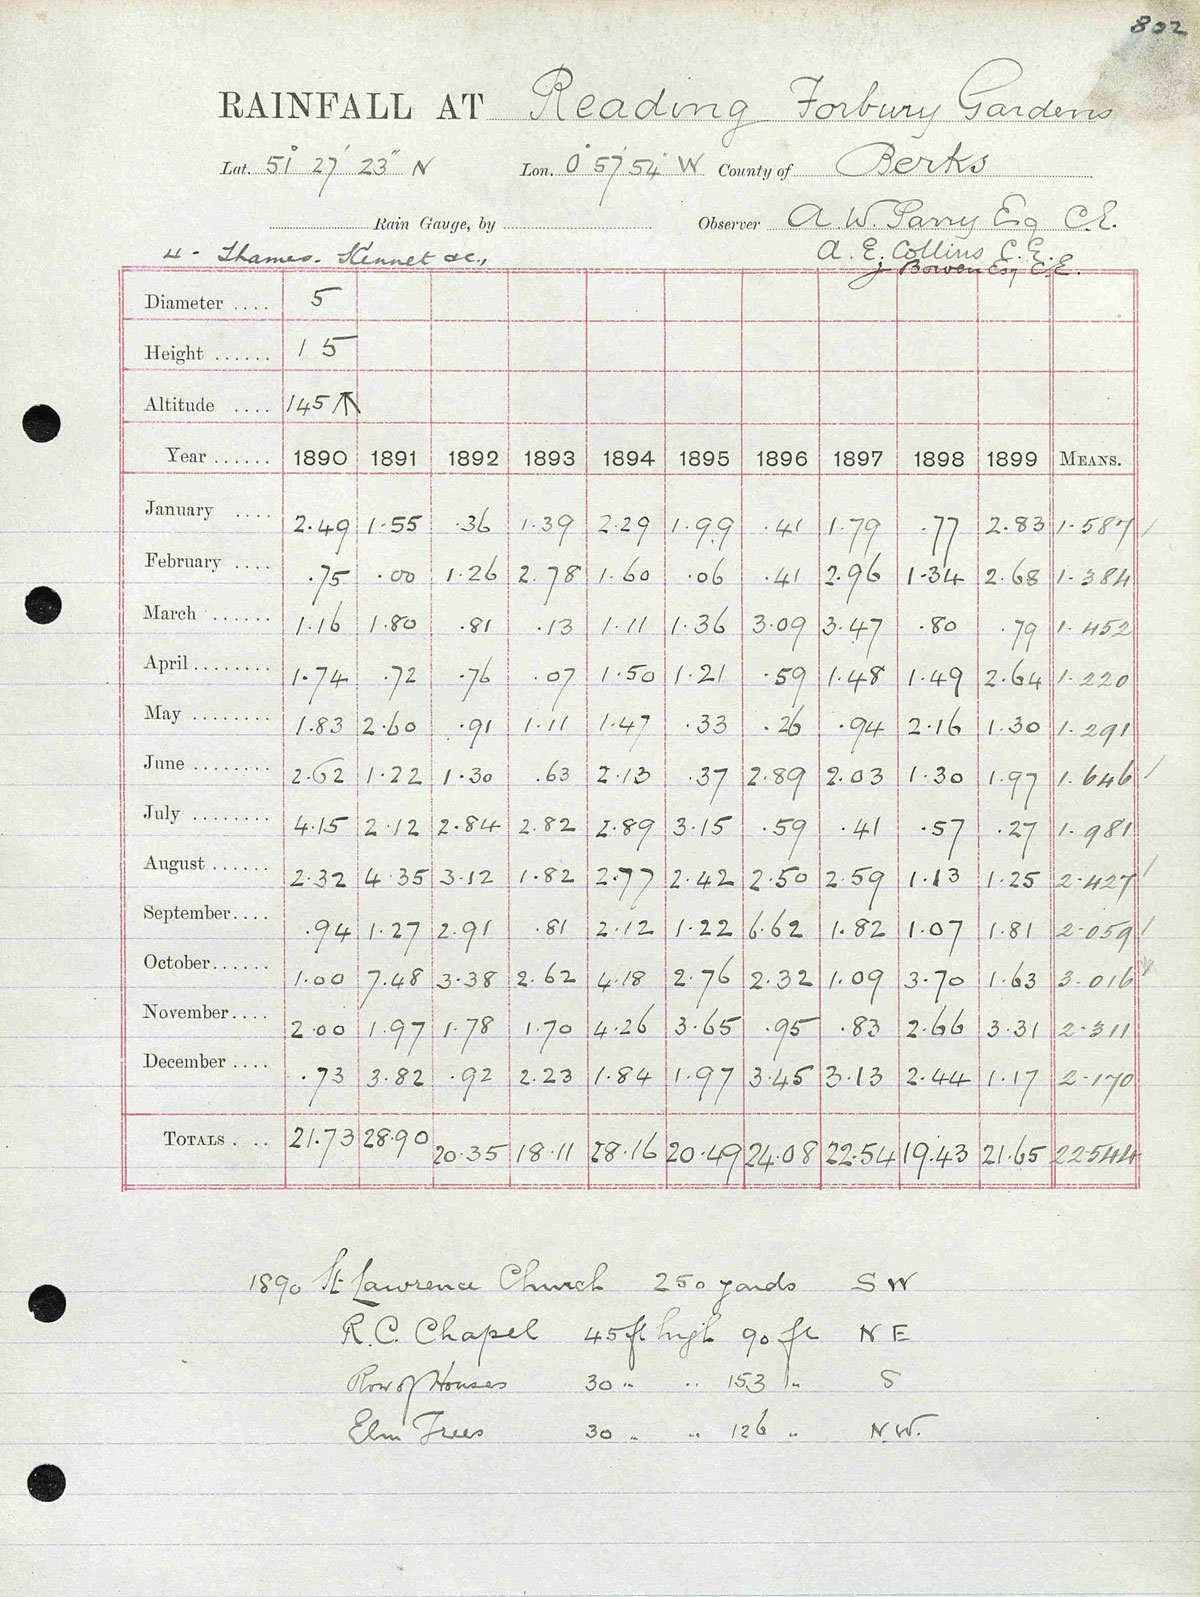 802
RAINFALL AT Reading Forbury Gardens
Lat. 51° 27' 23" N Lon. 0° 57' 54" W County of Berks
Rain Gauge, by Observer A. W. Parry Esq C.E.
4 - Thames. Kennet &c., A. E. Collins C. E.
J Bowen Esq C.E.
Diameter .... 5
Height ...... 1 5
Altitude .... 145
Year ...... 1890 1891 1892 1893 1894 1895 1896 1897 1898 1899 MEANS.
January .... 2.49 1.55 .36 1.39 2.29 1.99 .41 1.79 .77 2.83 1.587
February .... .75 .00 1.26 2.78 1.60 .06 .41 2.96 1.34 2.68 1.384
March ...... 1.16 1.80 .81 .13 1.11 1.36 3.09 3.47 .80 .79 1.452
April ........ 1.74 .72 .76 .07 1.50 1.21 .59 1.48 1.49 2.64 1.220
May ........ 1.83 2.60 .91 1.11 1.47 .33 .26 .94 2.16 1.30 1.291
June ........ 2.62 1.22 1.30 .63 2.13 .37 2.89 2.03 1.30 1.97 1.646
July ........ 4.15 2.12 2.84 2.82 2.89 3.15 .59 .41 .57 .27 1.981
August ...... 2.32 4.35 3.12 1.82 2.77 2.42 2.50 2.59 1.13 1.25 2.427
September .... .94 1.27 2.91 .81 2.12 1.22 6.62 1.82 1.07 1.81 2.059
October ...... 1.00 7.48 3.38 2.62 4.18 2.76 2.32 1.09 3.70 1.63 3.016
November .... 2.00 1.97 1.78 1.70 4.26 3.65 .95 .83 2.66 3.31 2.311
December .... .73 3.82 .92 2.23 1.84 1.97 3.45 3.13 2.44 1.17 2.170
TOTALS . .. 21.73 28.90 20.35 18.11 28.16 20.49 24.08 22.54 19.43 21.65 22.544
1890 St Lawrence Church 250 yards S W
R.C. Chapel 45 ft high 90 ft N E
Row of Houses 30 " " 153 " S
Elm Trees 30 " " 126 " N.W.